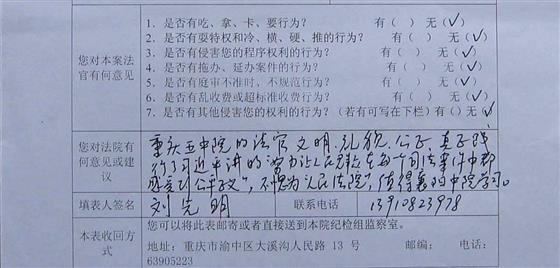 1. 是否有吃、拿、卡、要行为? 有( ) 无(✓)
2. 是否有要特权和冷、横、硬、推的行为? 有( ) 无(✓)
您对本案法 3. 是否有侵害您的程序权利的行为? 有( ) 无(✓)
官有何意见 4. 是否有拖办、延办案件的行为? 有( ) 无(✓)
5. 是否有庭审不准时、不规范行为? 有( ) 无(✓)
6. 是否有乱收费或超标准收费行为? 有( ) 无(✓)
7. 是否有其他侵害您的权利的行为?(若有可写在下栏)有( )无(✓)
您对法院有 重庆五中院的法官文明、礼貌、公正、真正践
何意见或建 行了习近平讲的"努力让人民群众在每个司法案件中都
议 感受到公平正义",不愧为"人民法院",值得中院学习。
填表人签名 刘光明 联系电话 13910823978
本表收回方 您可以将此表邮寄或者直接送到本院纪检组监察室。
式 地址:重庆市渝中区大溪沟人民路 13 号 邮编: 电话:
63905223